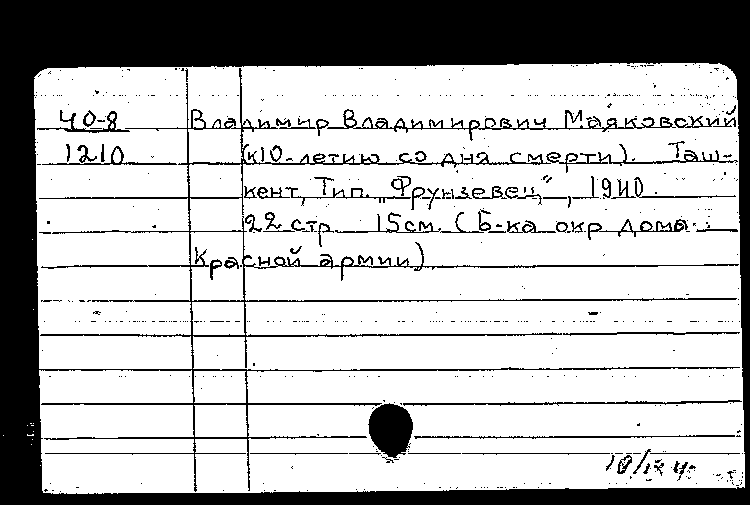 40-8 Владимир Владимирович Маяковский
1210 (к 10-летию со дня смерти). Таш-
кент, Тип. „Фрунзевец“, 1940.
22 стр. 15см. (Б-ка окр дома
Красной армии)